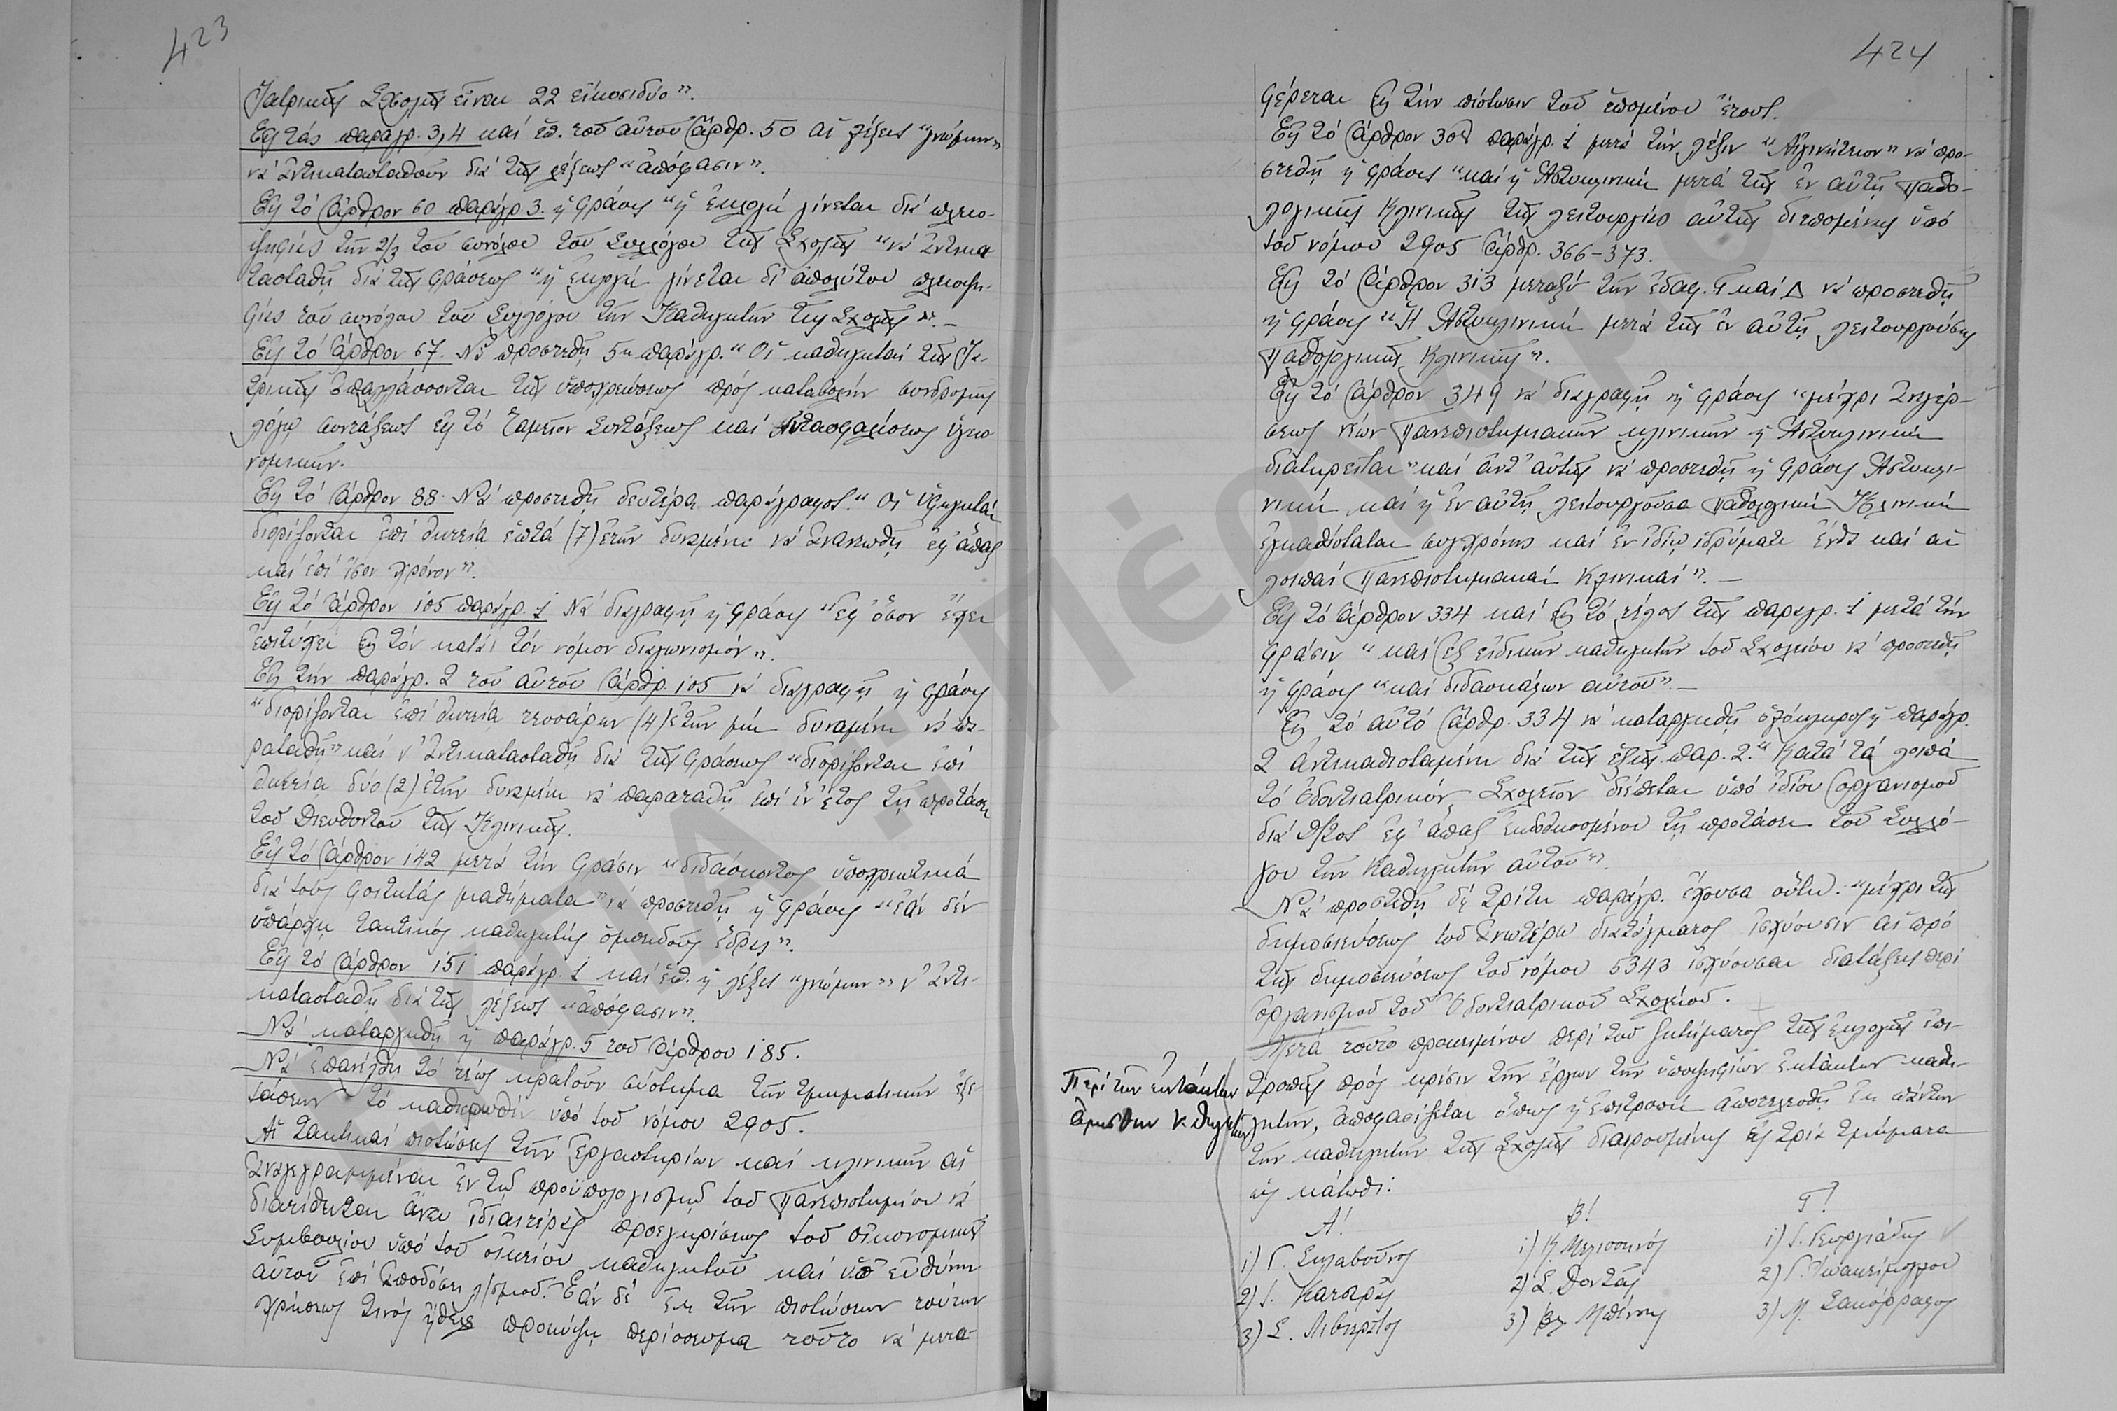 423
Ἰατρικῆς Σχολῆς εἶναι 22 εἰκοσιδύο".
Εἰς τάς παραγρ. 3,4 καί ἑπ. τοῦ αὐτοῦ ἄρθρ. 50 αἱ λέξεις "γνώμην"
νά ἀντικατασταθοῦν διά τῆς λέξεως "ἀπόφασιν".
Εἰς τό ἄρθρον 60 παράγρ 3. ἡ φράσις "ἡ ἐκλογή γίνεται διά πλειο-
ψηφίας τῶν 2/3 τοῦ συνόλου τοῦ Συλλόγου τῆς Σχολῆς" νά ἀντικα
τασταθῇ διά τῆς φράσεως "ἡ ἐκλογή γίνεται δι' ἀπολύτου πλειοψη-
φίας τοῦ συνόλου τοῦ Συλλόγου τῶν Καθηγητῶν τῆς Σχολῆς".—
Εἰς τό ἄρθρον 67. Νά προστεθῇ 5η παράγρ. "Οἱ καθηγηταί τῆς Ἰα-
τρικῆς ἀπαλλάσσονται τῆς ὑποχρεώσεως πρός καταβολήν συνδρομῆς
λόγῳ συντάξεως εἰς τό Ταμεῖον Συντάξεως καί Αὐτασφαλίσεως ὑγειο
νομικῶν.
Εἰς τό ἄρθρον 88. Νά προστεθῇ δευτέρα παράγραφος. "Οἱ ὑφηγηταί
διορίζονται ἐπί θητείᾳ ἑπτά (7) ἐτῶν δυναμένῃ νά ἀνανεωθῇ ἐφ' ἅπαξ
καί ἐπί ἴσον χρόνον".
Εἰς τό ἄρθρον 105 παράγρ. 1 Νά διαγραφῇ ἡ φράσις "ἐφ' ὅσον ἔχει
ἐπιτύχει εἰς τόν κατά τόν νόμον διαγωνισμόν".
Εἰς τήν παράγρ. 2 τοῦ αὐτοῦ ἄρθρ. 105 νά διαγραφῇ ἡ φράσις
"διορίζονται ἐπί θητείᾳ τεσσάρων (4) ἐτῶν μή δυναμένῃ νά πα-
ραταθῇ" καί ν' ἀντικατασταθῇ διά τῆς φράσεως "διορίζονται ἐπί
θητείᾳ δύο (2) ἐτῶν δυναμένῃ νά παραταθῇ ἐπί ἕν ἔτος τῇ προτάσει
τοῦ Διευθυντοῦ τῆς Κλινικῆς.
Εἰς τό ἄρθρον 142 μετά τήν φράσιν "διδάσκοντος ὑποχρεωτικά
διά τούς φοιτητάς μαθήματα" νά προστεθῇ ἡ φράσις "ἐάν δέν
ὑπάρχῃ τακτικός καθηγητής ὁμοειδοῦς ἕδρας".
Εἰς τό ἄρθρον 151 παράγρ. 1 καί ἑπ. ἡ λέξις "γνώμην" ν' ἀντι-
κατασταθῇ διά τῆς λέξεως "ἀπόφασιν".
Νά καταργηθῇ ἡ παράγρ. 5 τοῦ ἄρθρου 185.
Νά ἐπανέλθῃ τό τέως κρατοῦν σύστημα τῶν τμηματικῶν ἐξε-
τάσεων τό καθιερωθέν ὑπό τοῦ νόμου 2905.
Αἱ τακτικαί πιστώσεις τῶν Ἐργαστηρίων καί κλινικῶν αἱ
ἀναγεγραμμέναι ἐν τῷ προϋπολογισμῷ τοῦ Πανεπιστημίου νά
διατίθενται ἄνευ ἰδιαιτέρας προεγκρίσεως τοῦ οἰκονομικοῦ
Συμβουλίου ὑπό τοῦ οἰκείου καθηγητοῦ καί ὑπ' εὐθύνῃ
αὐτοῦ ἐπί ἀποδόσει λ/σμοῦ. Ἐάν δέ ἐκ τῶν πιστώσεων τούτων
χρήσεως τινός ἤθελε προκύψῃ περίσσευμα τοῦτο νά μετα-
424
φέρεται εἰς τήν πίστωσιν τοῦ ἑπομένου ἔτους.
Εἰς τό ἄρθρον 308 παράγρ. 1 μετά τήν λέξιν "Αἰγινήτειον" νά προ-
στεθῇ ἡ φράσις "καί ἡ Ἀστυκλινική μετά τῆς ἐν αὐτῇ Παθο-
λογικῆς Κλινικῆς τῆς λειτουργίας αὐτῆς διεπομένης ὑπό
τοῦ νόμου 2905 ἄρθρ. 366-373.
Εἰς τό ἄρθρον 313 μεταξύ τῶν ἐδαφ. Γ καί Δ νά προστεθῇ
ἡ φράσις "Ἡ Ἀστυκλινική μετά τῆς ἐν αὐτῇ λειτουργούσης
Παθολογικῆς Κλινικῆς".
Εἰς τό ἄρθρον 349 νά διαγραφῇ ἡ φράσις "μέχρι ἀνεγέρ-
σεως νέων Πανεπιστημιακῶν κλινικῶν ἡ Ἀστυκλινική
διατηρεῖται" καί ἀντ' αὐτῆς νά προστεθῇ ἡ φράσις Ἀστυκλι-
νική καί ἡ ἐν αὐτῇ λειτουργοῦσα Παθολογική Κλινική
ἐγκαθίσταται συγχρόνως καί ἐν ἰδίῳ ἱδρύματι ἔνθα καί αἱ
λοιπαί Πανεπιστημιακαί Κλινικαί".—
Εἰς τό ἄρθρον 334 καί εἰς τό τέλος τῆς παραγρ. 1 μετά τήν
φράσιν "καί ἐξ εἰδικῶν καθηγητῶν τοῦ Σχολείου νά προστεθῇ
ἡ φράσις "καί διδασκάλων αὐτοῦ".—
Εἰς τό αὐτό ἄρθρ. 334 νά καταργηθῇ ὁλόκληρος ἡ παράγρ.
2 ἀντικαθισταμένη διά τῆς ἑξῆς παρ. 2. "Κατά τά λοιπά
τό Ὀδοντιατρικόν Σχολεῖον διέπεται ὑπό ἰδίου ὀργανισμοῦ
διά Δ/τος ἐφ' ἅπαξ ἐκδοθησομένου τῇ προτάσει τοῦ Συλλό-
γου τῶν Καθηγητῶν αὐτοῦ".
Νά προστεθῇ δέ τρίτη παράγρ. ἔχουσα οὕτω. "μέχρι τῆς
δημοσιεύσεως τοῦ ἀνωτέρω διατάγματος ἰσχύουσιν αἱ πρό
τῆς δημοσιεύσεως τοῦ νόμου 5343 ἰσχύουσαι διατάξεις περί
ὀργανισμοῦ τοῦ Ὀδοντιατρικοῦ Σχολείου.
Μετά τοῦτο προκειμένου περί τοῦ ζητήματος τῆς ἐκλογῆς ἐπι-
Περί τῶν ἐκτάκτων τροπῆς πρός κρίσιν τῶν ἔργων τῶν ὑποψηφίων ἐκτάκτων καθη-
ἀμίσθων καθηγητῶν γητῶν, ἀποφασίζεται ὅπως ἡ ἐπιτροπή ἀποτελεσθῇ ἐκ πάντων
τῶν καθηγητῶν τῆς Σχολῆς διαιρουμένης εἰς τρία τμήματα
ὡς κάτωθι:
Α! Β! Γ!
1) Γ. Σκλαβοῦνος 1) Κ. Μελισσινός 1) Ι. Γεωργιάδης
2) Ι. Κατσαρᾶς 2) Σ. Δοντᾶς 2) Γ. Ἰωακείμογλου
3) Σ. Λιβιεράτος 3) Β. Μπένσης 3) Μ. Σακόρραφος